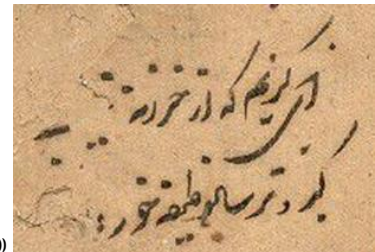 ای کریمی که از خزانه غیب
گبر و ترسا وظیفه خور